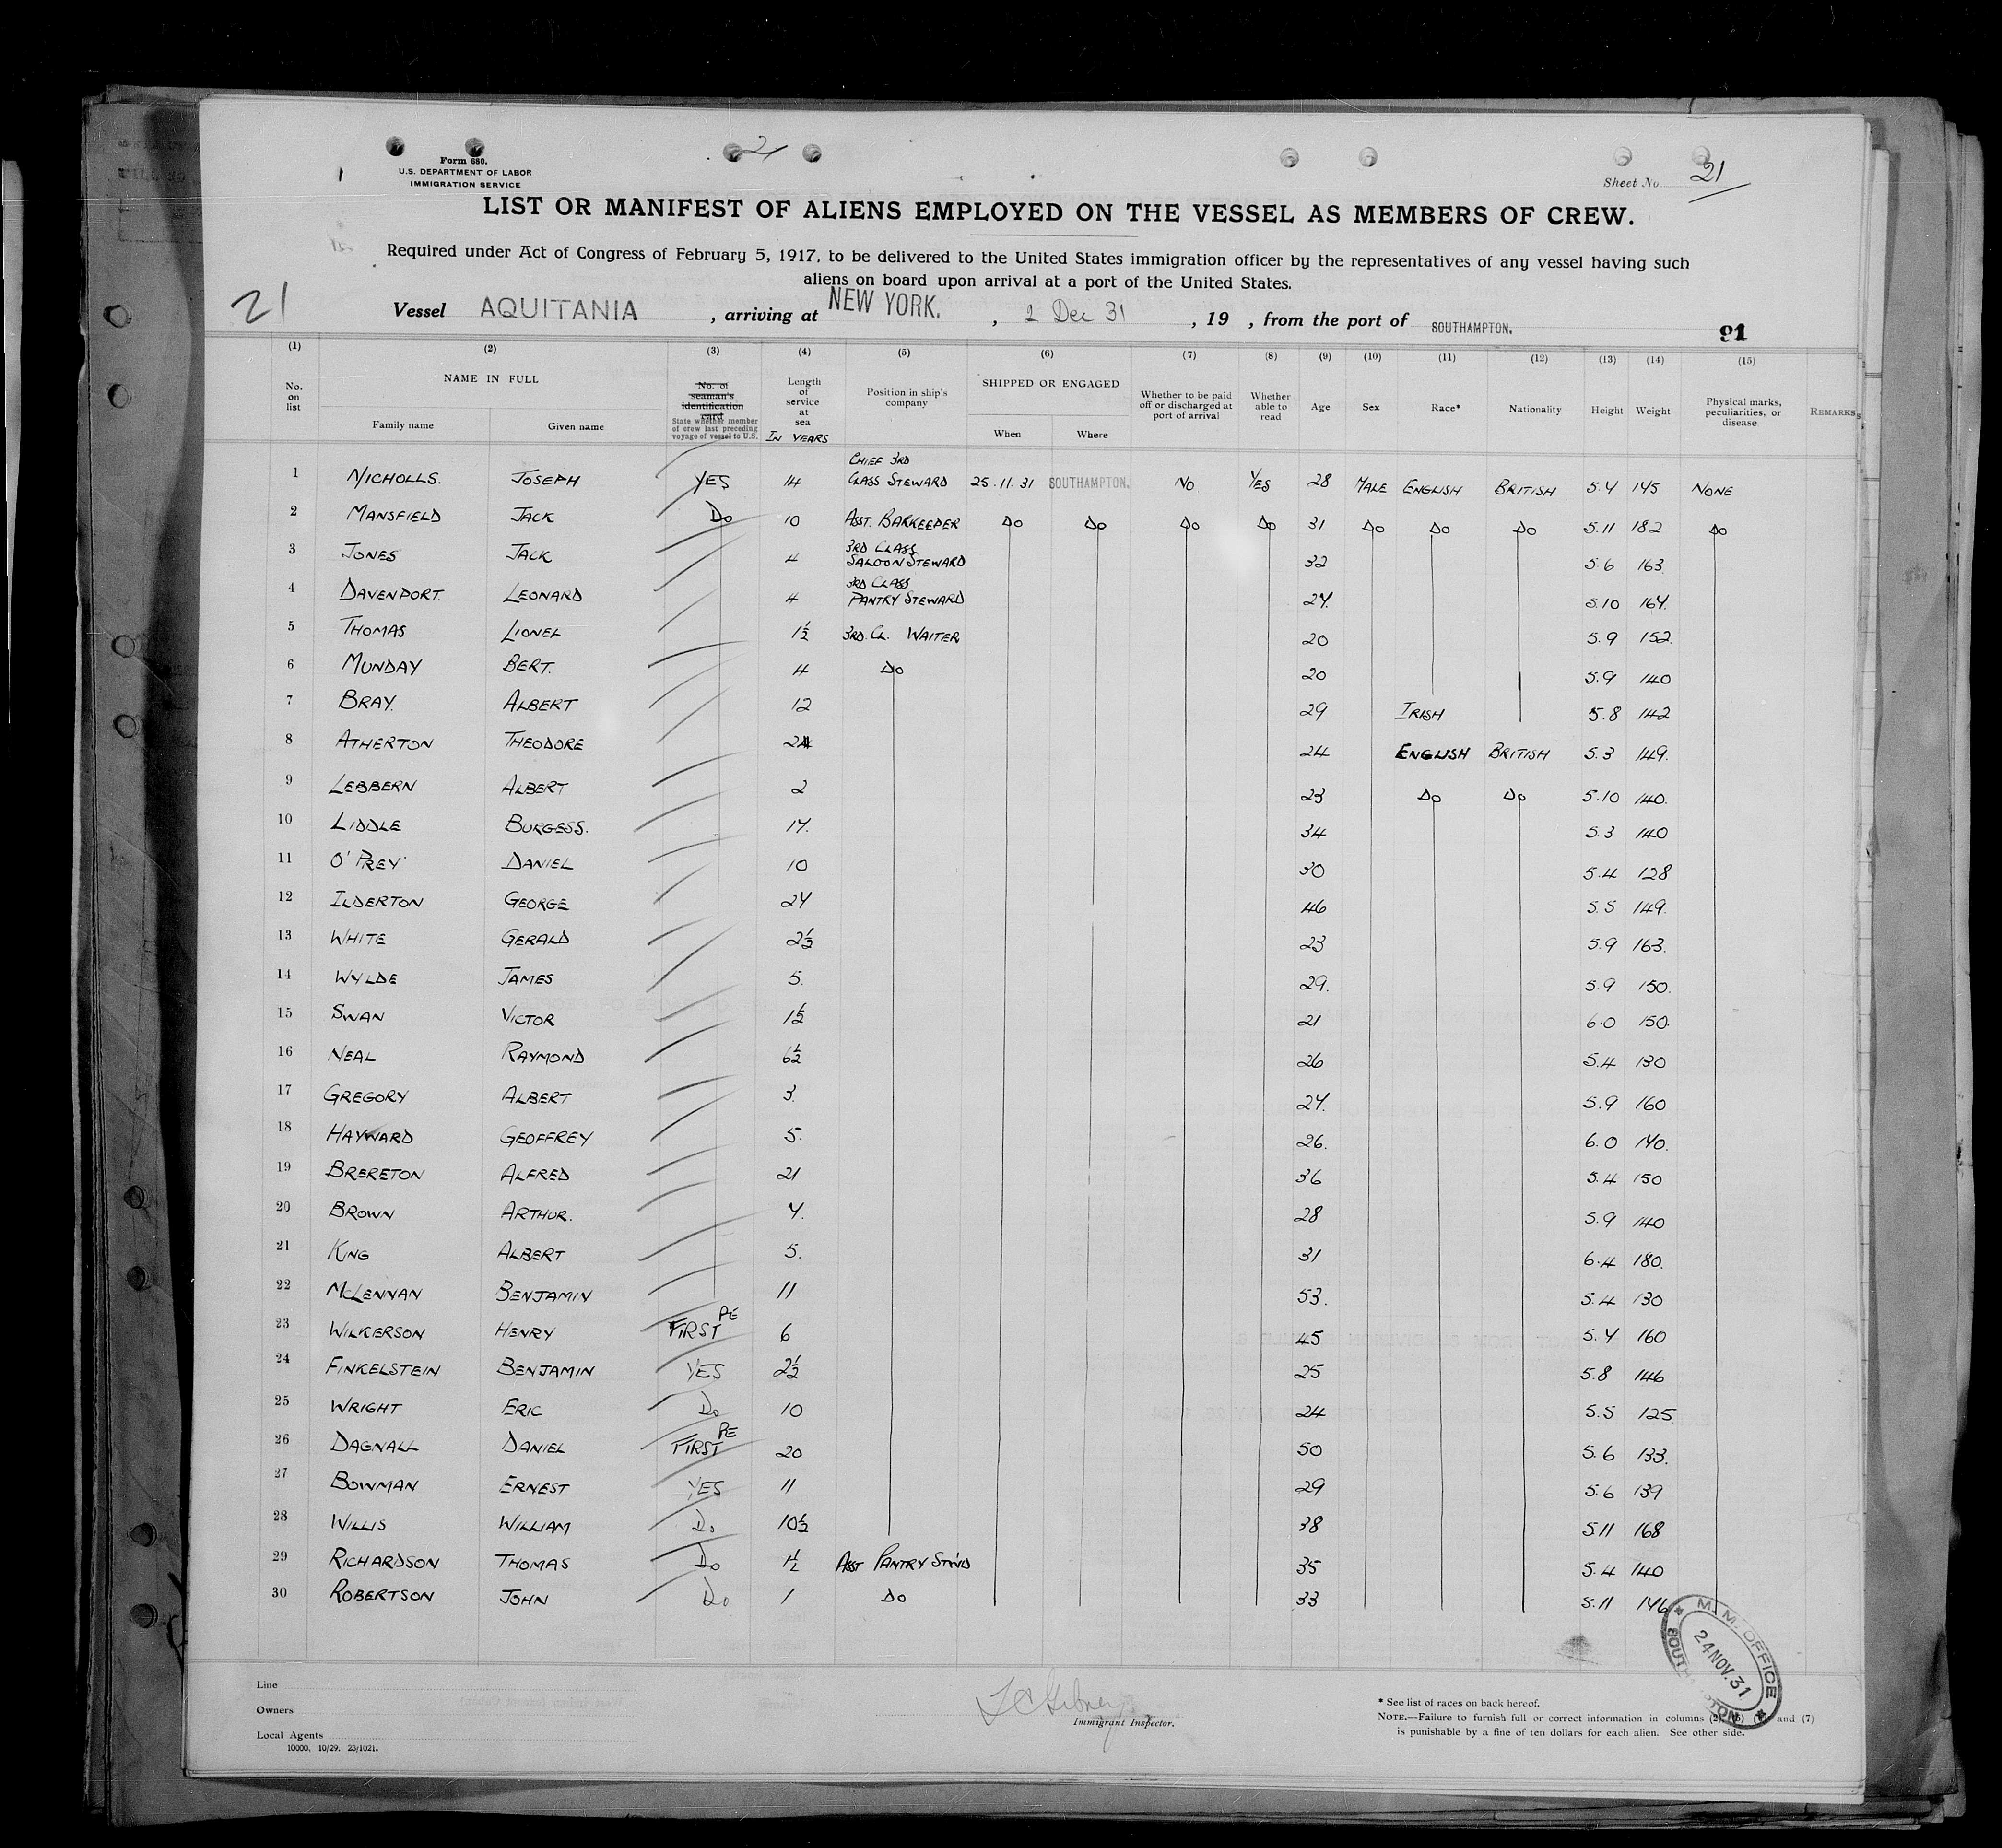 21
21
Form 680.
U.S. DEPARTMENT OF LABOR
IMMIGRATION SERVICE
Sheet No.
LIST OR MANIFEST OF ALIENS EMPLOYED ON THE VESSEL AS MEMBERS OF CREW.
Required under Act of Congress of February 5, 1917, to be delivered to the United States immigration officer by the representatives of any vessel having such
aliens on board upon arrival at a port of the United States.
21 Vessel AQUITANIA , arriving at NEW YORK. , 2 Dec 31 , 19 , from the port of SOUTHAMPTON.
91
(1) (2) (3) (4) (5) (6) (7) (8) (9) (10) (11) (12) (13) (14) (15)
No. on list NAME IN FULL Family name Given name No. of seaman's identification card State whether member of crew last preceding voyage of vessel to U.S. Length of service at sea IN YEARS Position in ship's company SHIPPED OR ENGAGED When Where Whether to be paid off or discharged at port of arrival Whether able to read Age Sex Race* Nationality Height Weight Physical marks, peculiarities, or disease REMARKS
1 NICHOLLS. JOSEPH YES 14 CHIEF 3RD CLASS STEWARD 25.11.31 SOUTHAMPTON. NO YES 28 MALE ENGLISH BRITISH 5.4 145 NONE
2 MANSFIELD JACK DO 10 ASST. BARKEEPER DO DO DO DO 31 DO DO DO 5.11 182 DO
3 JONES JACK 4 3RD CLASS SALOON STEWARD 32 5.6 163
4 DAVENPORT. LEONARD 4 3RD CLASS PANTRY STEWARD 24. 5.10 164.
5 THOMAS LIONEL 1½ 3RD. CL. WAITER 20 5.9 152.
6 MUNDAY BERT. 4 DO 20 5.9 140
7 BRAY. ALBERT 12 29 IRISH 5.8 142
8 ATHERTON THEODORE 24 ENGLISH BRITISH 5.3 149.
9 LEBBERN ALBERT 2 23 DO DO 5.10 140.
10 LIDDLE BURGESS. 17. 34 5.3 140
11 O'PREY DANIEL 10 30 5.4 128
12 ILDERTON GEORGE 24 46 5.5 149.
13 WHITE GERALD 2½ 23 5.9 163.
14 WYLDE JAMES 5. 29. 5.9 150.
15 SWAN VICTOR 1½ 21 6.0 150.
16 NEAL RAYMOND 6½ 26 5.4 130
17 GREGORY ALBERT 3. 24. 5.9 160
18 HAYWARD GEOFFREY 5. 26. 6.0 140.
19 BRERETON ALFRED 21 36 5.4 150
20 BROWN ARTHUR. 28 5.9 140
21 KING ALBERT 5. 31 6.4 180.
22 MCLENNAN BENJAMIN 11 53. 5.4 130
23 WILKIERSON HENRY FIRST PE 6 45 5.4 160
24 FINKELSTEIN BENJAMIN YES 2½ 25 5.8 146
25 WRIGHT ERIC DO 10 24 5.5 125
26 DAGNALL DANIEL FIRST PE 20 50 5.6 133.
27 BOWMAN ERNEST YES 11 29 5.6 139
28 WILLIS WILLIAM DO 10½ 38 5.11 168
29 RICHARDSON THOMAS DO 1½ ASST PANTRY STWD 35 5.4 140
30 ROBERTSON JOHN DO 1 DO 33 5.11 146
M. M. OFFICE
24 NOV. 31
Line
Owners
Local Agents
10000, 10/29. 23/1021.
Immigrant Inspector.
* See list of races on back hereof.
NOTE.—Failure to furnish full or correct information in columns (2) and (7)
is punishable by a fine of ten dollars for each alien. See other side.